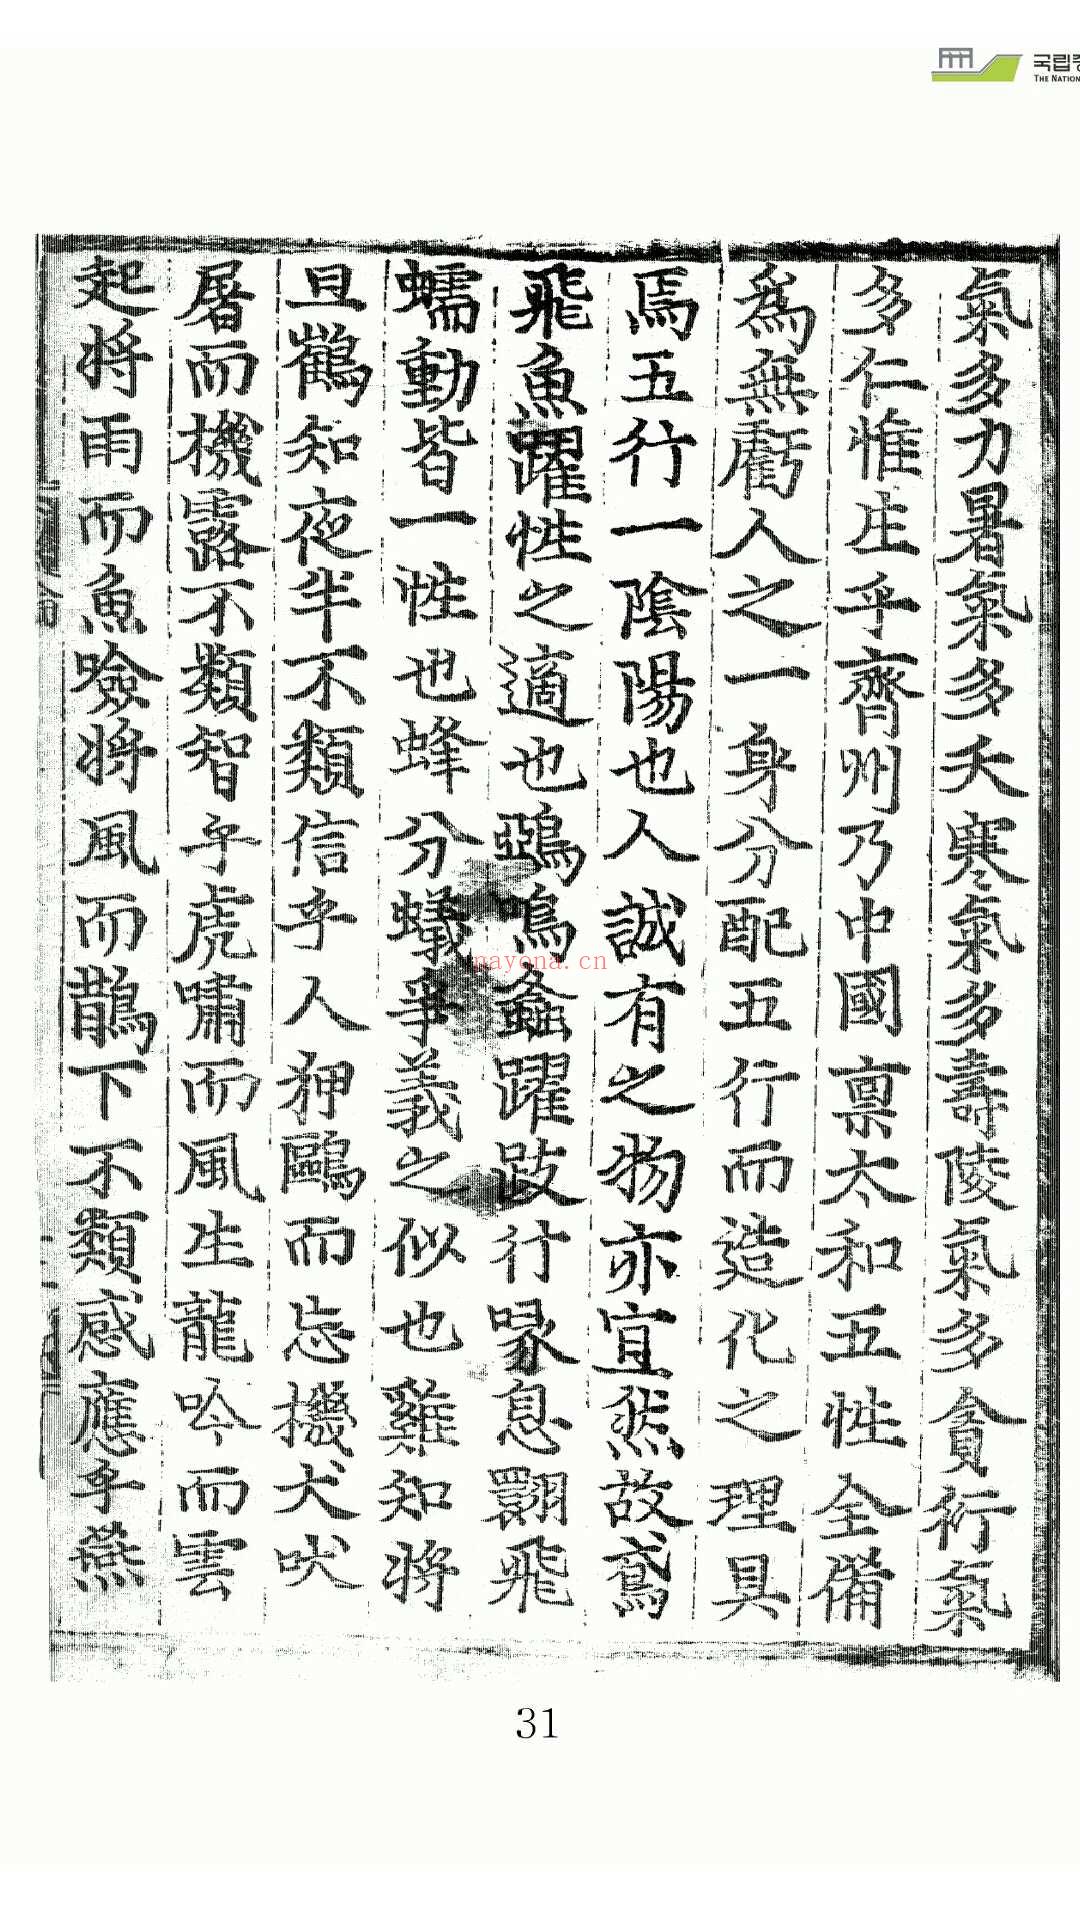 국립중
THE NATION
氣多力暑氣多夭寒氣多壽陵氣多貪衍氣
多仁惟生乎齊州乃中國禀太和五性全備
爲無虧人之一身分配五行而造化之理具
焉五行一陰陽也人誠有之物亦宜然故鳶
飛魚躍性之適也鵶鳴螽躍跂行喙息翾飛
蠕動皆一性也蜂分蟻爭義之似也雞知將
旦鶴知夜半不類信乎人狎鷗而忘機犬吠
屠而機露不類智乎虎嘯而風生龍吟而雲
起將雨而魚噞將風而鵲下不類感應乎燕
nayona.cn
31